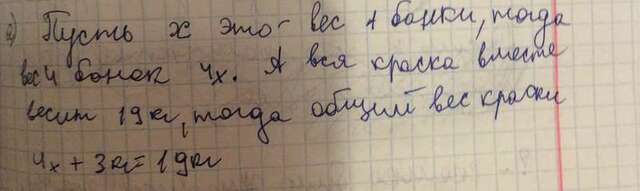 2) Пусть x это - вес 1 банки, тогда
вес 4 банок 4x. А вся краска вместе
весит 19 кг, тогда общий вес краски
4x + 3кг = 19кг